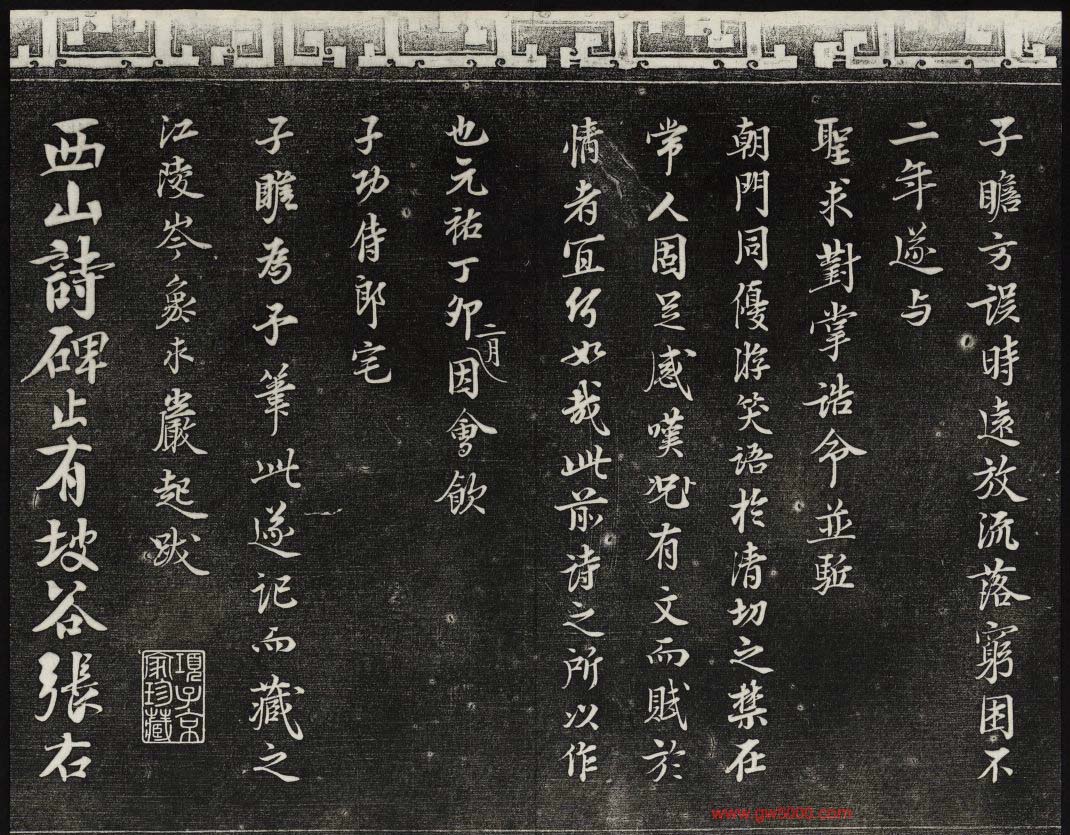 子瞻方誤時遠放流落窮困不
二年遂与
聖求對掌誥命並駈
朝門同優游笑語於清切之禁在
常人固足感嘆况有文而賦於
情者宜何如哉此前诗之所以作
也元祐丁卯二月因會飲
子功侍郎宅
子瞻為予筆此遂記而藏之
江陵岑象求巖起跋
項子京家珍藏
西山詩碑止有坡谷張右
www.gw5000.com